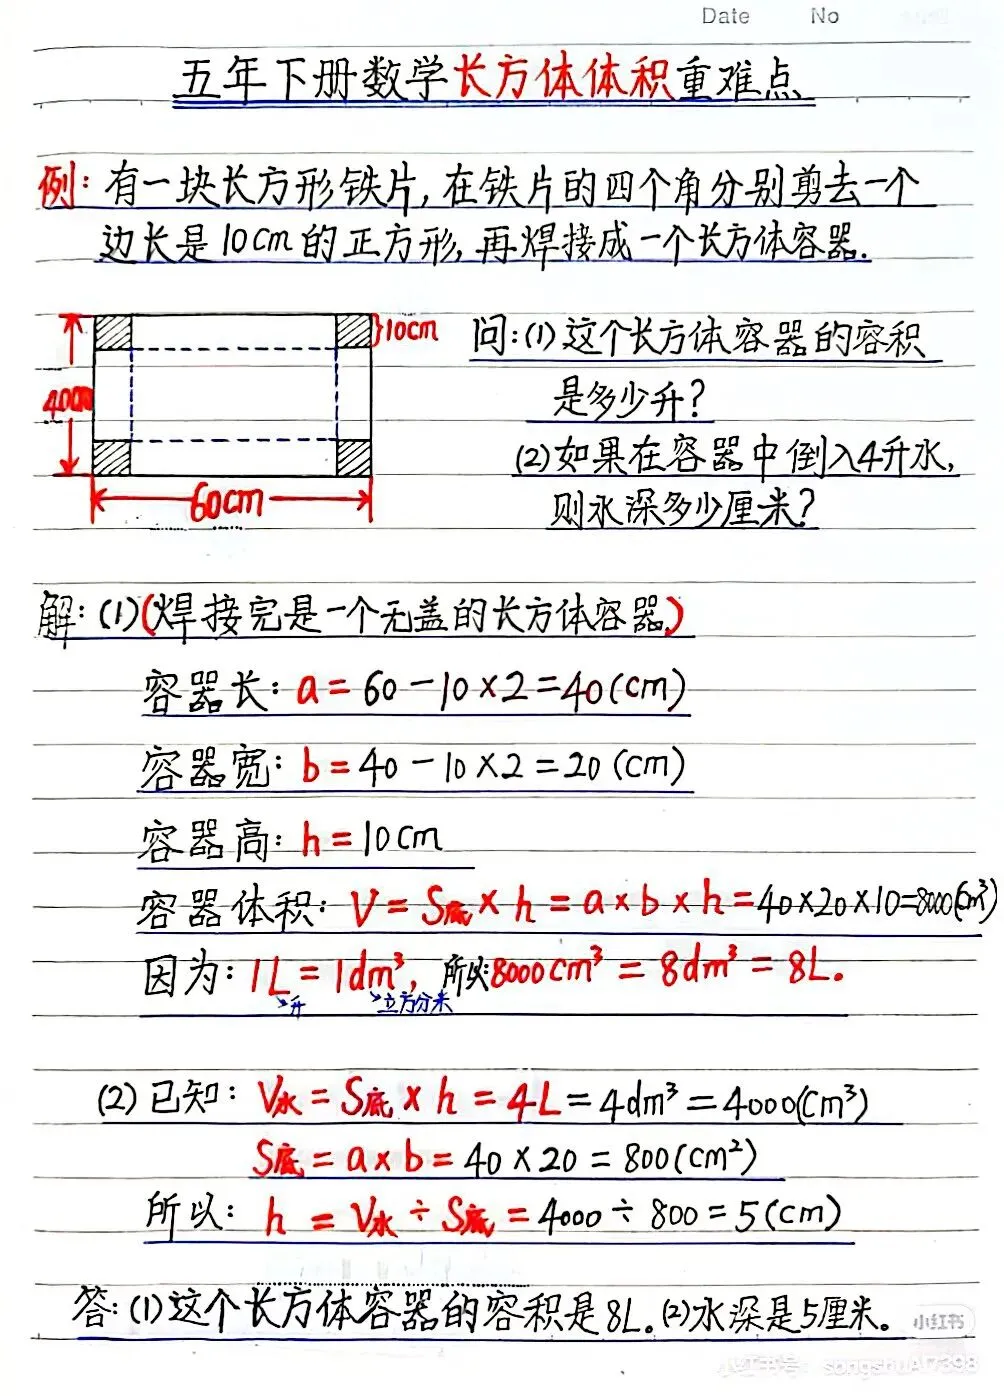 Date No
五年下册数学长方体体积重难点
例:有一块长方形铁片,在铁片的四个角分别剪去一个
边长是10cm的正方形,再焊接成一个长方体容器.
10cm
40cm
60cm
问:(1)这个长方体容器的容积
是多少升?
(2)如果在容器中倒入4升水,
则水深多少厘米?
解:(1)(焊接完是一个无盖的长方体容器.)
容器长:a=60-10×2=40(cm)
容器宽:b=40-10×2=20(cm)
容器高:h=10cm
容器体积:V=S底×h=a×b×h=40×20×10=8000(cm³)
因为:1L=1dm³,所以8000cm³=8dm³=8L.
升 立方分米
(2)已知:V水=S底×h=4L=4dm³=4000(cm³)
S底=a×b=40×20=800(cm²)
所以:h=V水÷S底=4000÷800=5(cm)
答:(1)这个长方体容器的容积是8L.(2)水深是5厘米。
小红书
小红书号: songshuAI7398